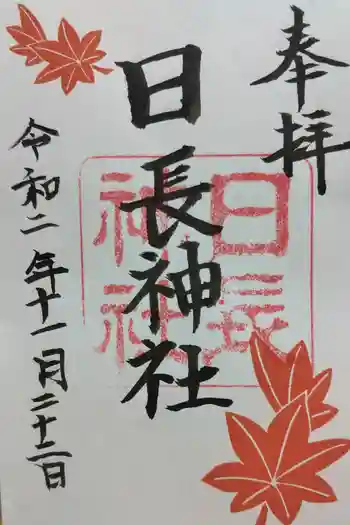 奉拝
日長神社
日長神社
令和二年十一月二十二日